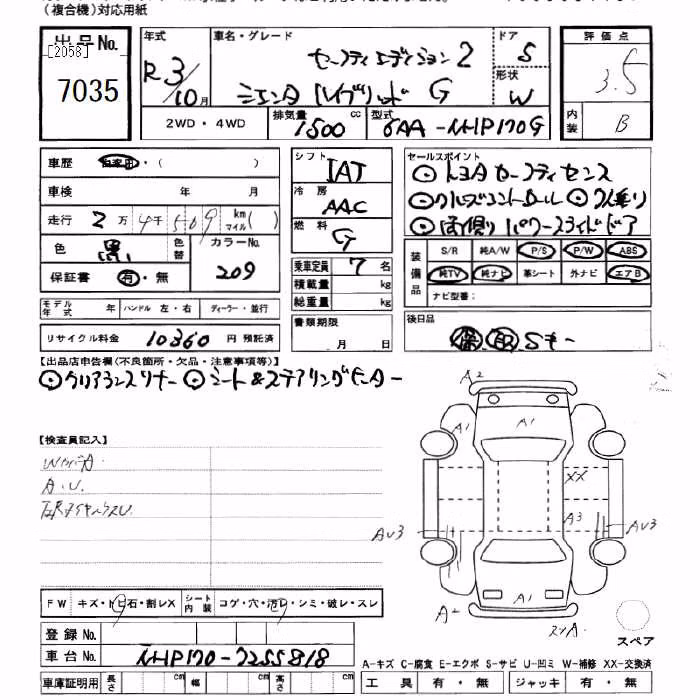 (複合機)対応用紙
出品No.
[2058]
7035
年式
R3/10月
車名・グレード
セーフティエディション2
シエンタ ハイブリッド G
ドア
5
形状
W
評価点
3.5
内装
B
2WD・4WD
排気量
1500 cc
型式
6AA-NHP170G
車歴 自家用・( )
車検 年 月
走行 2万4千509 km マイル( )
色 黒 色替
カラーNo. 209
保証書 有・無
モデル年式 年 ハンドル 左・右 ディーラー・並行
リサイクル料金 10360 円 預託済
シフト IAT
冷房 AAC
燃料 G
乗車定員 7 名
積載量 kg
総重量 kg
書類期限
月 日
セールスポイント
トヨタセーフティセンス
クルーズコントロール 7人乗り
両側パワースライドドア
装備品
S/R 純A/W P/S P/W ABS
純TV 純ナビ 革シート 外ナビ エアB
ナビ型番:
後日品
保 取 Sキー
【出品店申告欄(不良箇所・欠品・注意事項等)】
クリアランスソナー シート&ステアリングヒーター
【検査員記入】
A.U.
A2
A1
A1
XX
A3
AU3
AU3
A1
A2
スペア
FW キズ・トビ石・割レX
シート内装 コゲ・穴・汚レ・シミ・破レ・スレ
登録No.
車台No. NHP170-7255818
車庫証明用 長さ cm 幅 cm 高さ cm
A-キズ C-腐食 E-エクボ S-サビ U-凹ミ W-補修 XX-交換済
工具 有・無 ジャッキ 有・無